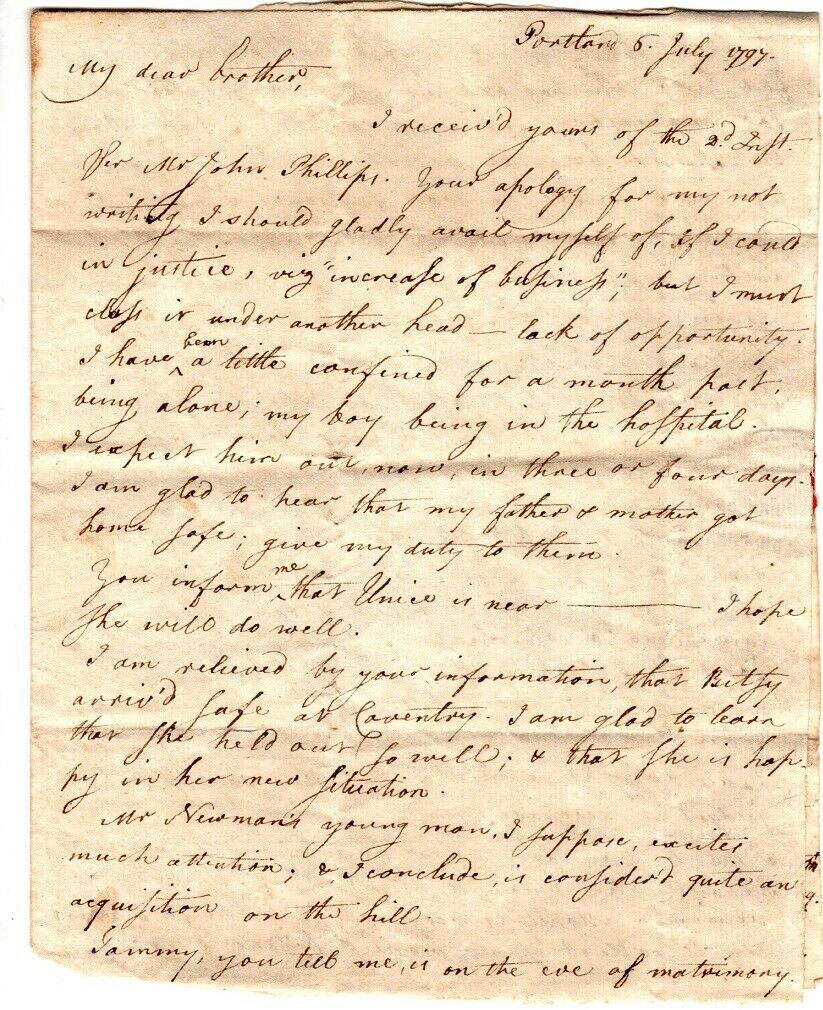 Portland 6. July 1797.
My dear brother,
I receiv'd yours of the 2d Inst.
Per Mr John Phillips. Your apology for my not
writing I should gladly avail myself of, if I could
in justice, viz "increase of business"; but I must
class it under another head — lack of opportunity.
I have been a little confined for a month past,
being alone; my boy being in the hospital.
I expect him out, now, in three or four days.
I am glad to hear that my father & mother got
home safe; give my duty to them.
You inform me that Unice is near ——— I hope
she will do well.
I am relieved by your information, that Betsy
arriv'd safe at Coventry. I am glad to learn
that she held out so well; & that she is hap
py in her new situation.
Mr Newman's young man, I suppose, excites
much attention; & I conclude, is consider'd quite an
acquisition on the hill.
Tammy, you tell me, is on the eve of matrimony.